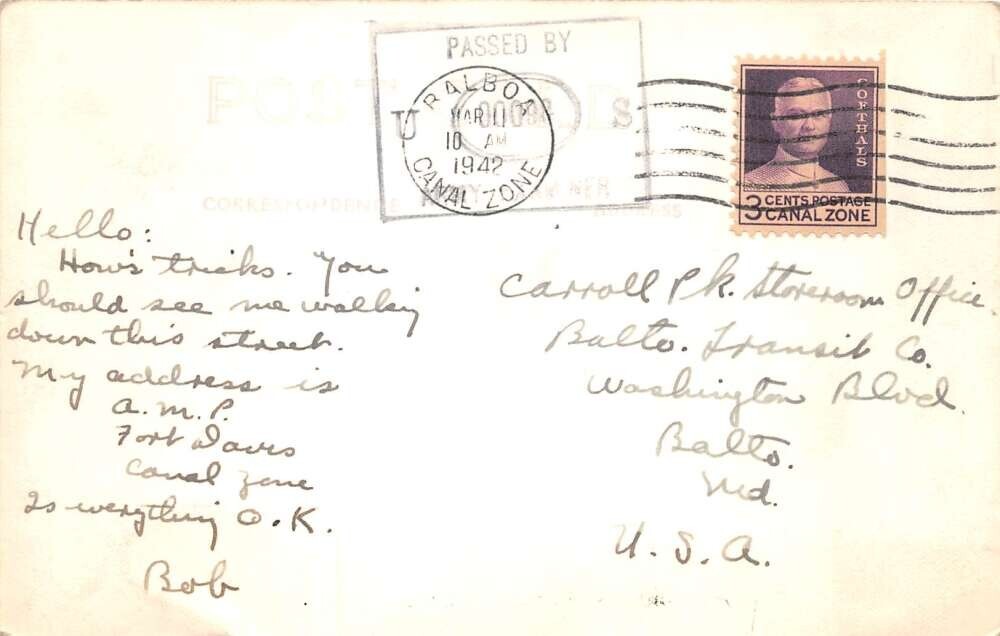 POST CARD
CORRESPONDENCE
ADDRESS
PASSED BY
U S
ARMY EXAMINER
BALBOA
MAR 11
10 AM
1942
CANAL ZONE
GOETHALS
3 CENTS POSTAGE
CANAL ZONE
Hello:
How's tricks. You
should see me walking
down this street.
My address is
A.M.P.
Fort Davis
Canal Zone
Is everything O.K.
Bob
Carroll Pk. Storeroom Office
Balto. Transit Co.
Washington Blvd.
Balto.
Md.
U.S.A.